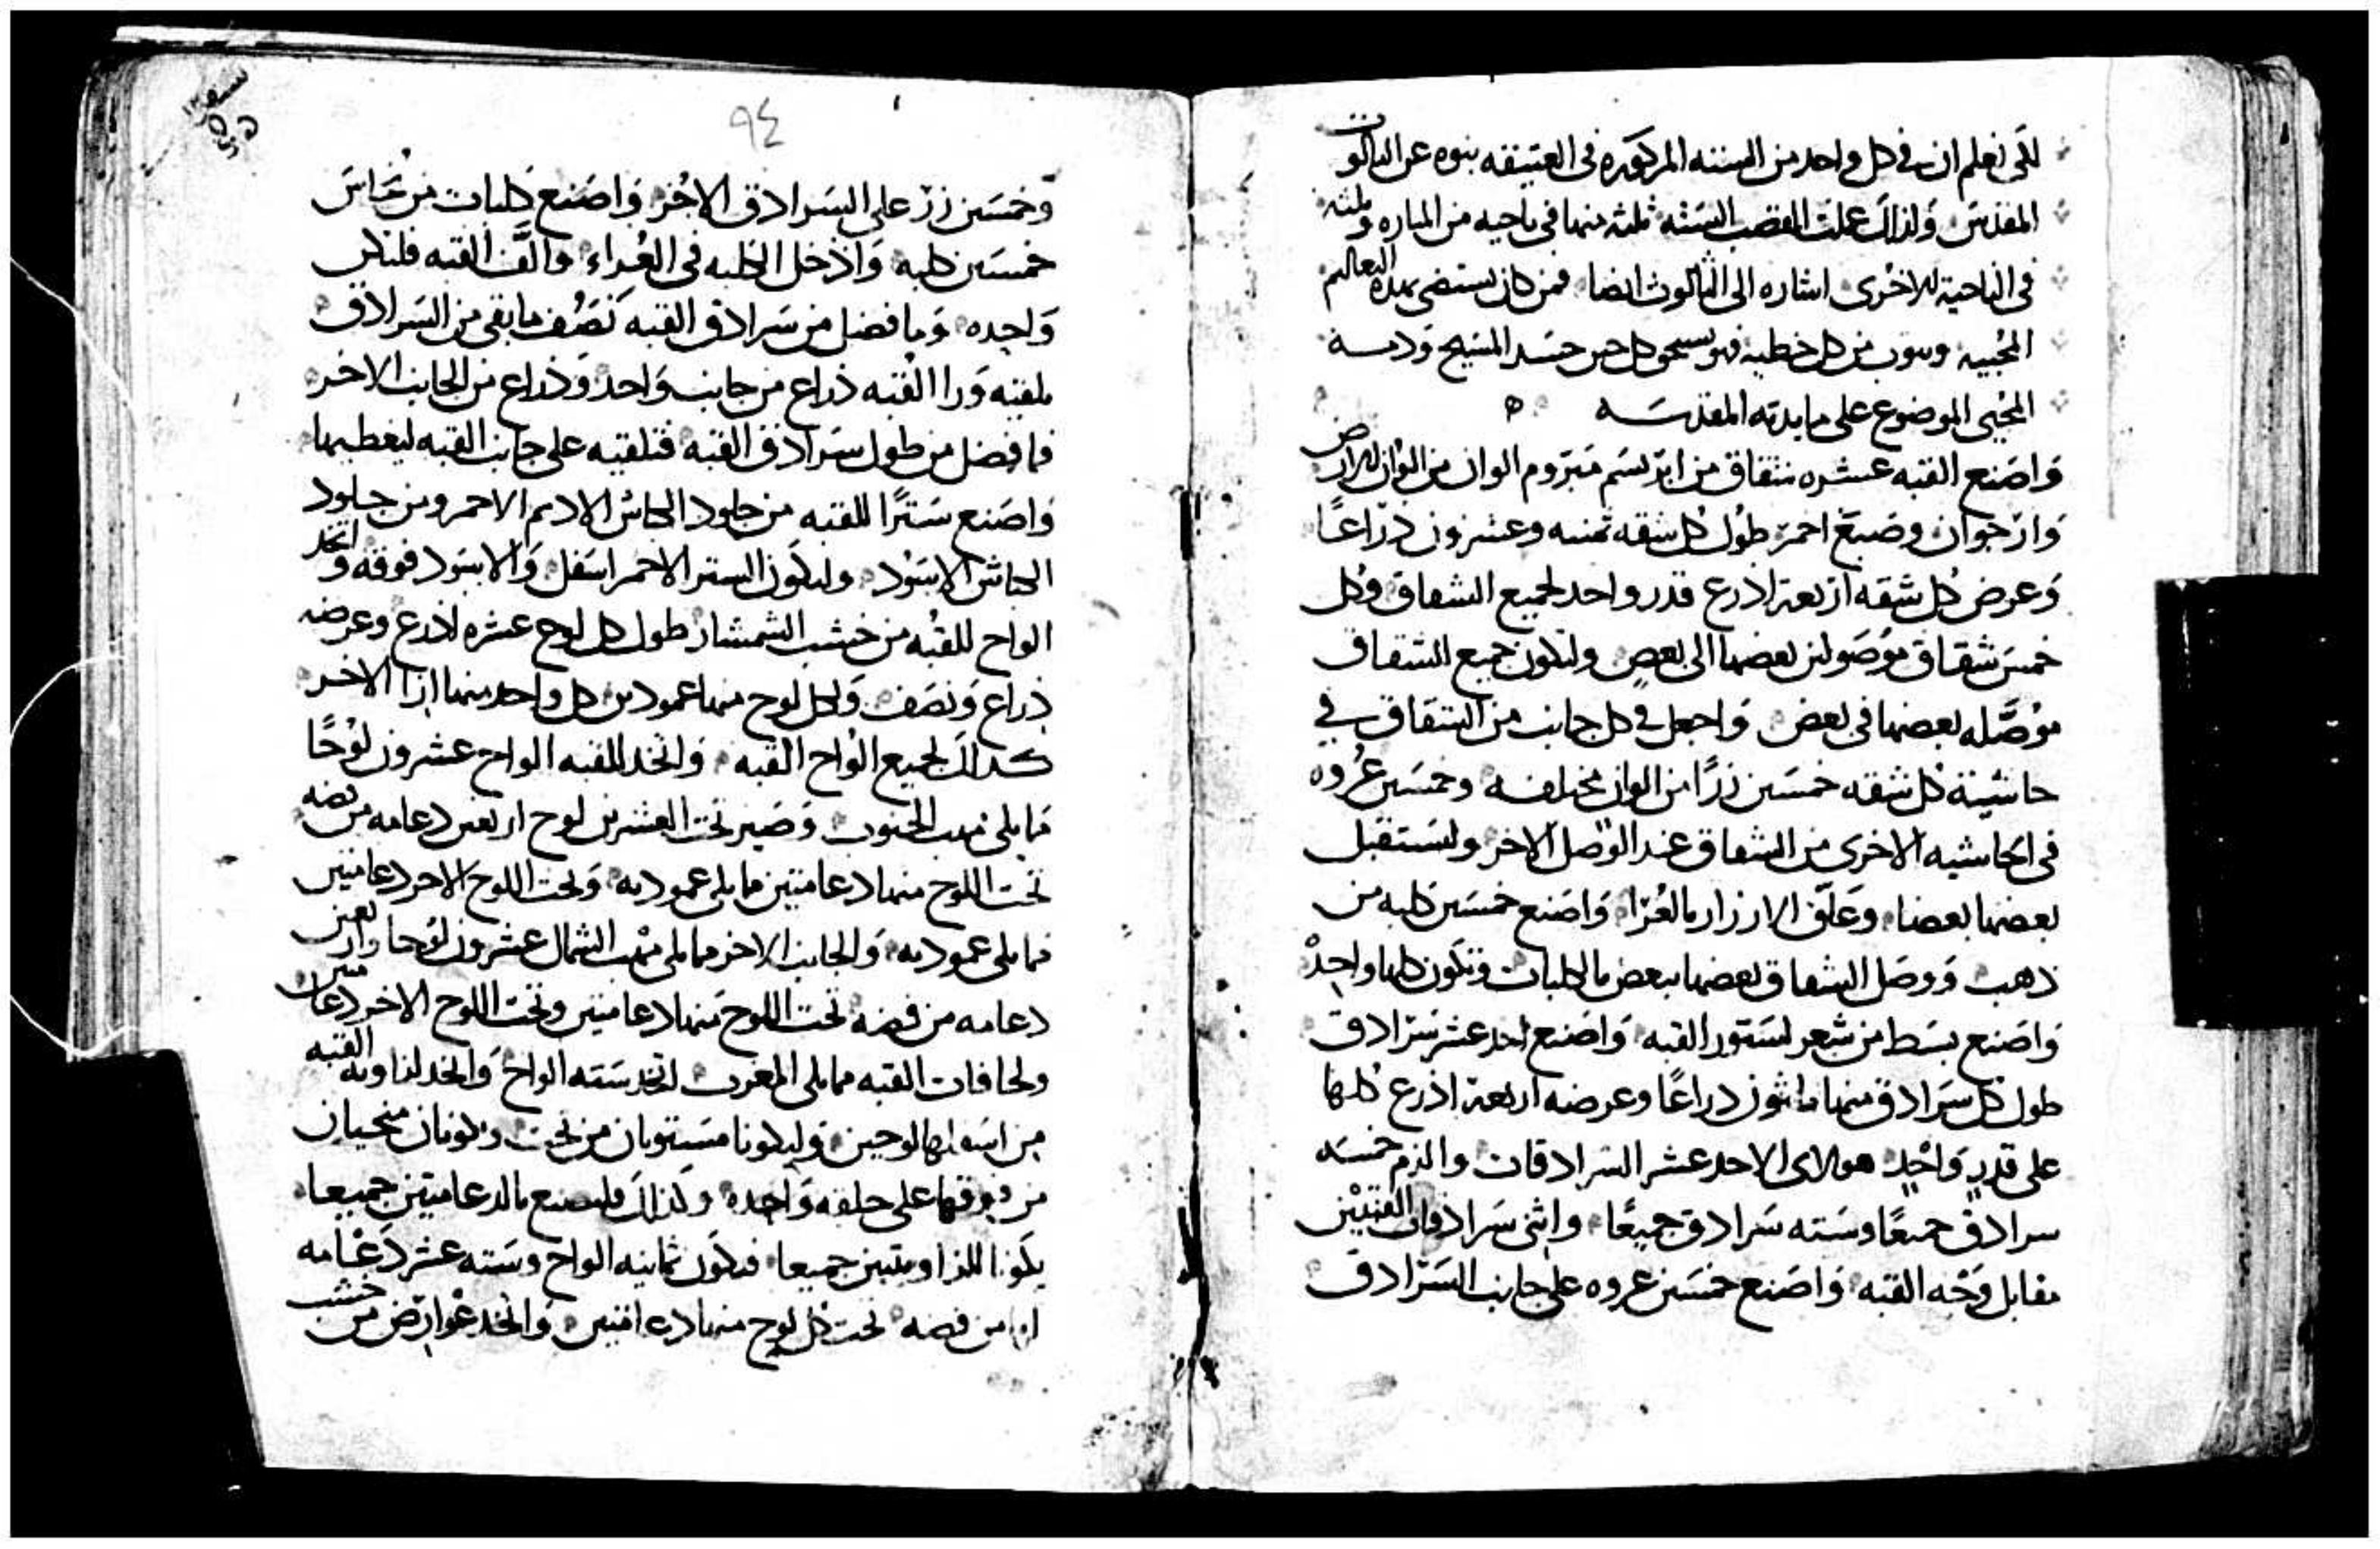 لكى نعلم ان فى كل واحد من السنه المذكوره فى العتيقه بنوه عن الثالوث
المقدس ولذلك عملت القصب السته ثلثه منها فى ناحيه من المناره وثلثه
فى الناحية الاخرى اشاره الى الثالوث ايضا فمن كان يستضى بهذه التعاليم
المحييه ويتوب من كل خطيه فهو يستحق كل حين جسد المسيح ودمه
المحيى الموضوع على مايدته المقدسه
وَاصَنع القبه عشره شقاق من ابريسَم مَبرَوم الوان من الوان الارض
وَارجوان وصَبغ احمر طول كل شقه ثمنيه وعشرون ذراعًا
وَعرض كل شقه اربعة اذرع قدر واحد لجميع الشقاق وكل
خمسَ شقاق موصَولين بعضها الى بعض ولتكون جميع الشقاق
موصَّله بعضها فى بعض وَاجعل فى كل جانب من الشقاق فى
حاشية كل شقه خمسَين زرًا من الوان مختلفه وخمسَين عُروه
فى الحاشيه الاخرى من الشقاق عند الوصل الاخر ولتستقبل
بعضها بعضا وَعَلّق الازرار بالعُرَا وَاصَنع خمسَين كلبه من
ذهب وَوصَل الشقاق بعضها ببعض بالكلبات وتكون كلها واحدْ
وَاصَنع بسَط من شعر لستور القبه وَاصَنع احد عشر سَرادق
طول كل سَرادق منها ثلثون ذراعًا وعرضه اربعة اذرع كلها
على قدرٍ وَاحدٍ هولاى الاحد عشر السَرادقات والزم خمسَه
سرادق جميعًا وسَته سَرادق جميعًا واثنى سَرادقات القبتين
مقابل وَجْه القبه وَاصَنع خمسَين عروه على جانب السَرادق
٩٤
وَخمسَين زرّ على السَرادق الاخر وَاصَنع كلبات من نحُاسَ
خمسَين كلبه وَادخل الكلبه فى العُراء والّف القبه فلتكن
وَاحِده وَما فضل من سَرادق القبه نَصَف ما بقى من السَرادق
تلقيه وَرا القبه ذراع من جانب وَاحد وَذراع من الجانب الاخر
فما فضل من طول سَرادق القبه فتلقيه على جانب القبه ليغطيها
وَاصَنع سَترًا للقبه من جلود الكباش الادم الاحمر ومن جلود
الكباش الاسَود وليكون الستر الاحمر اسَفل وَالاسَود فوقه واتخذ
الواح للقبه من خشب الشمشار طول كل لوح عشره اذرع وعرضه
ذراع وَنصَف وَلكل لوح منها عمودين كل واحد منها ازا الاخر
كذلك لجميع الواح القبه وَاتخذ للقبه الواح عشرون لوْحًا
مما يلى مهب الجنوب وَصَير تحت العشرين لوح اربعين دعامه من فضه
تحت اللوح منها دعامتين مما يلى عموديه وَتحت اللوح الاخر دعامتين
مما يلى عموديه وَالجانب الاخر مما يلى مهب الشمال عشرون لوحا واربعين
دعامه من فضه تحت اللوح منها دعامتين وتحت اللوح الاخر دعامتين
ولحافات القبه مما يلى المغرب لتتخذ سَته الواح وَاتخذ لزاويه القبه
من اسَفلها لوحين وَليكونا مسَتويان من تحت ويكونان منحيان
من فوقها على حلقه وَاحِده وَكذلك فليصنع بالدعامتين جميعا
يكونا للزاويتين جميعا فيكون ثمانيه الواح وسَته عشر دَعَامه
من فضه تحت كل لوح منها دعامتين وَاتخذ عوارض من خشب